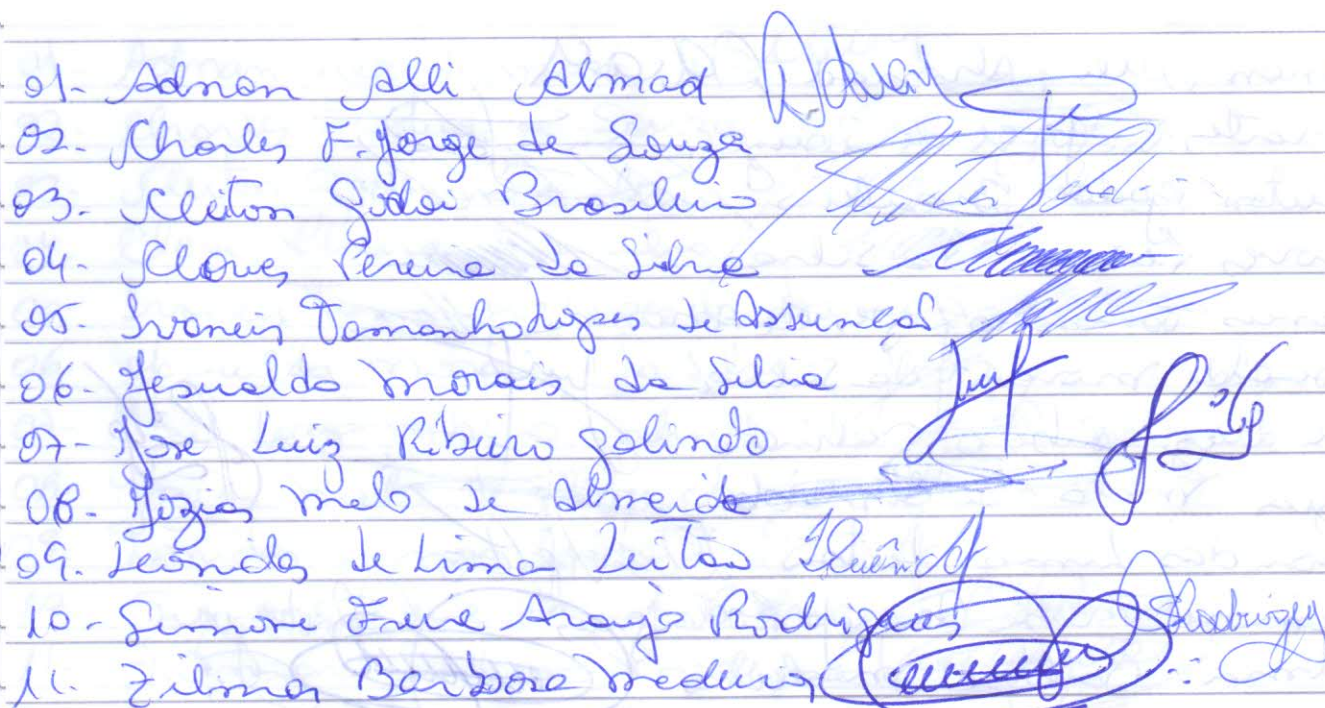 01- Adnan Alli Ahmad
02- Charles F. Jorge de Souza
03- Cleiton Godoi Brasileiro
04- Cloves Pereira da Silva
05- Ivaneis Tamanho Lopes de Assunção
06- Jesualdo Morais da Silva
07- José Luiz Ribeiro Galindo
08- Jozias Melo de Almeida
09- Leonidas de Lima Leitão
10- Simone Freire Araújo Rodrigues SRodrigues
11. Zilmar Barbosa Medeiros